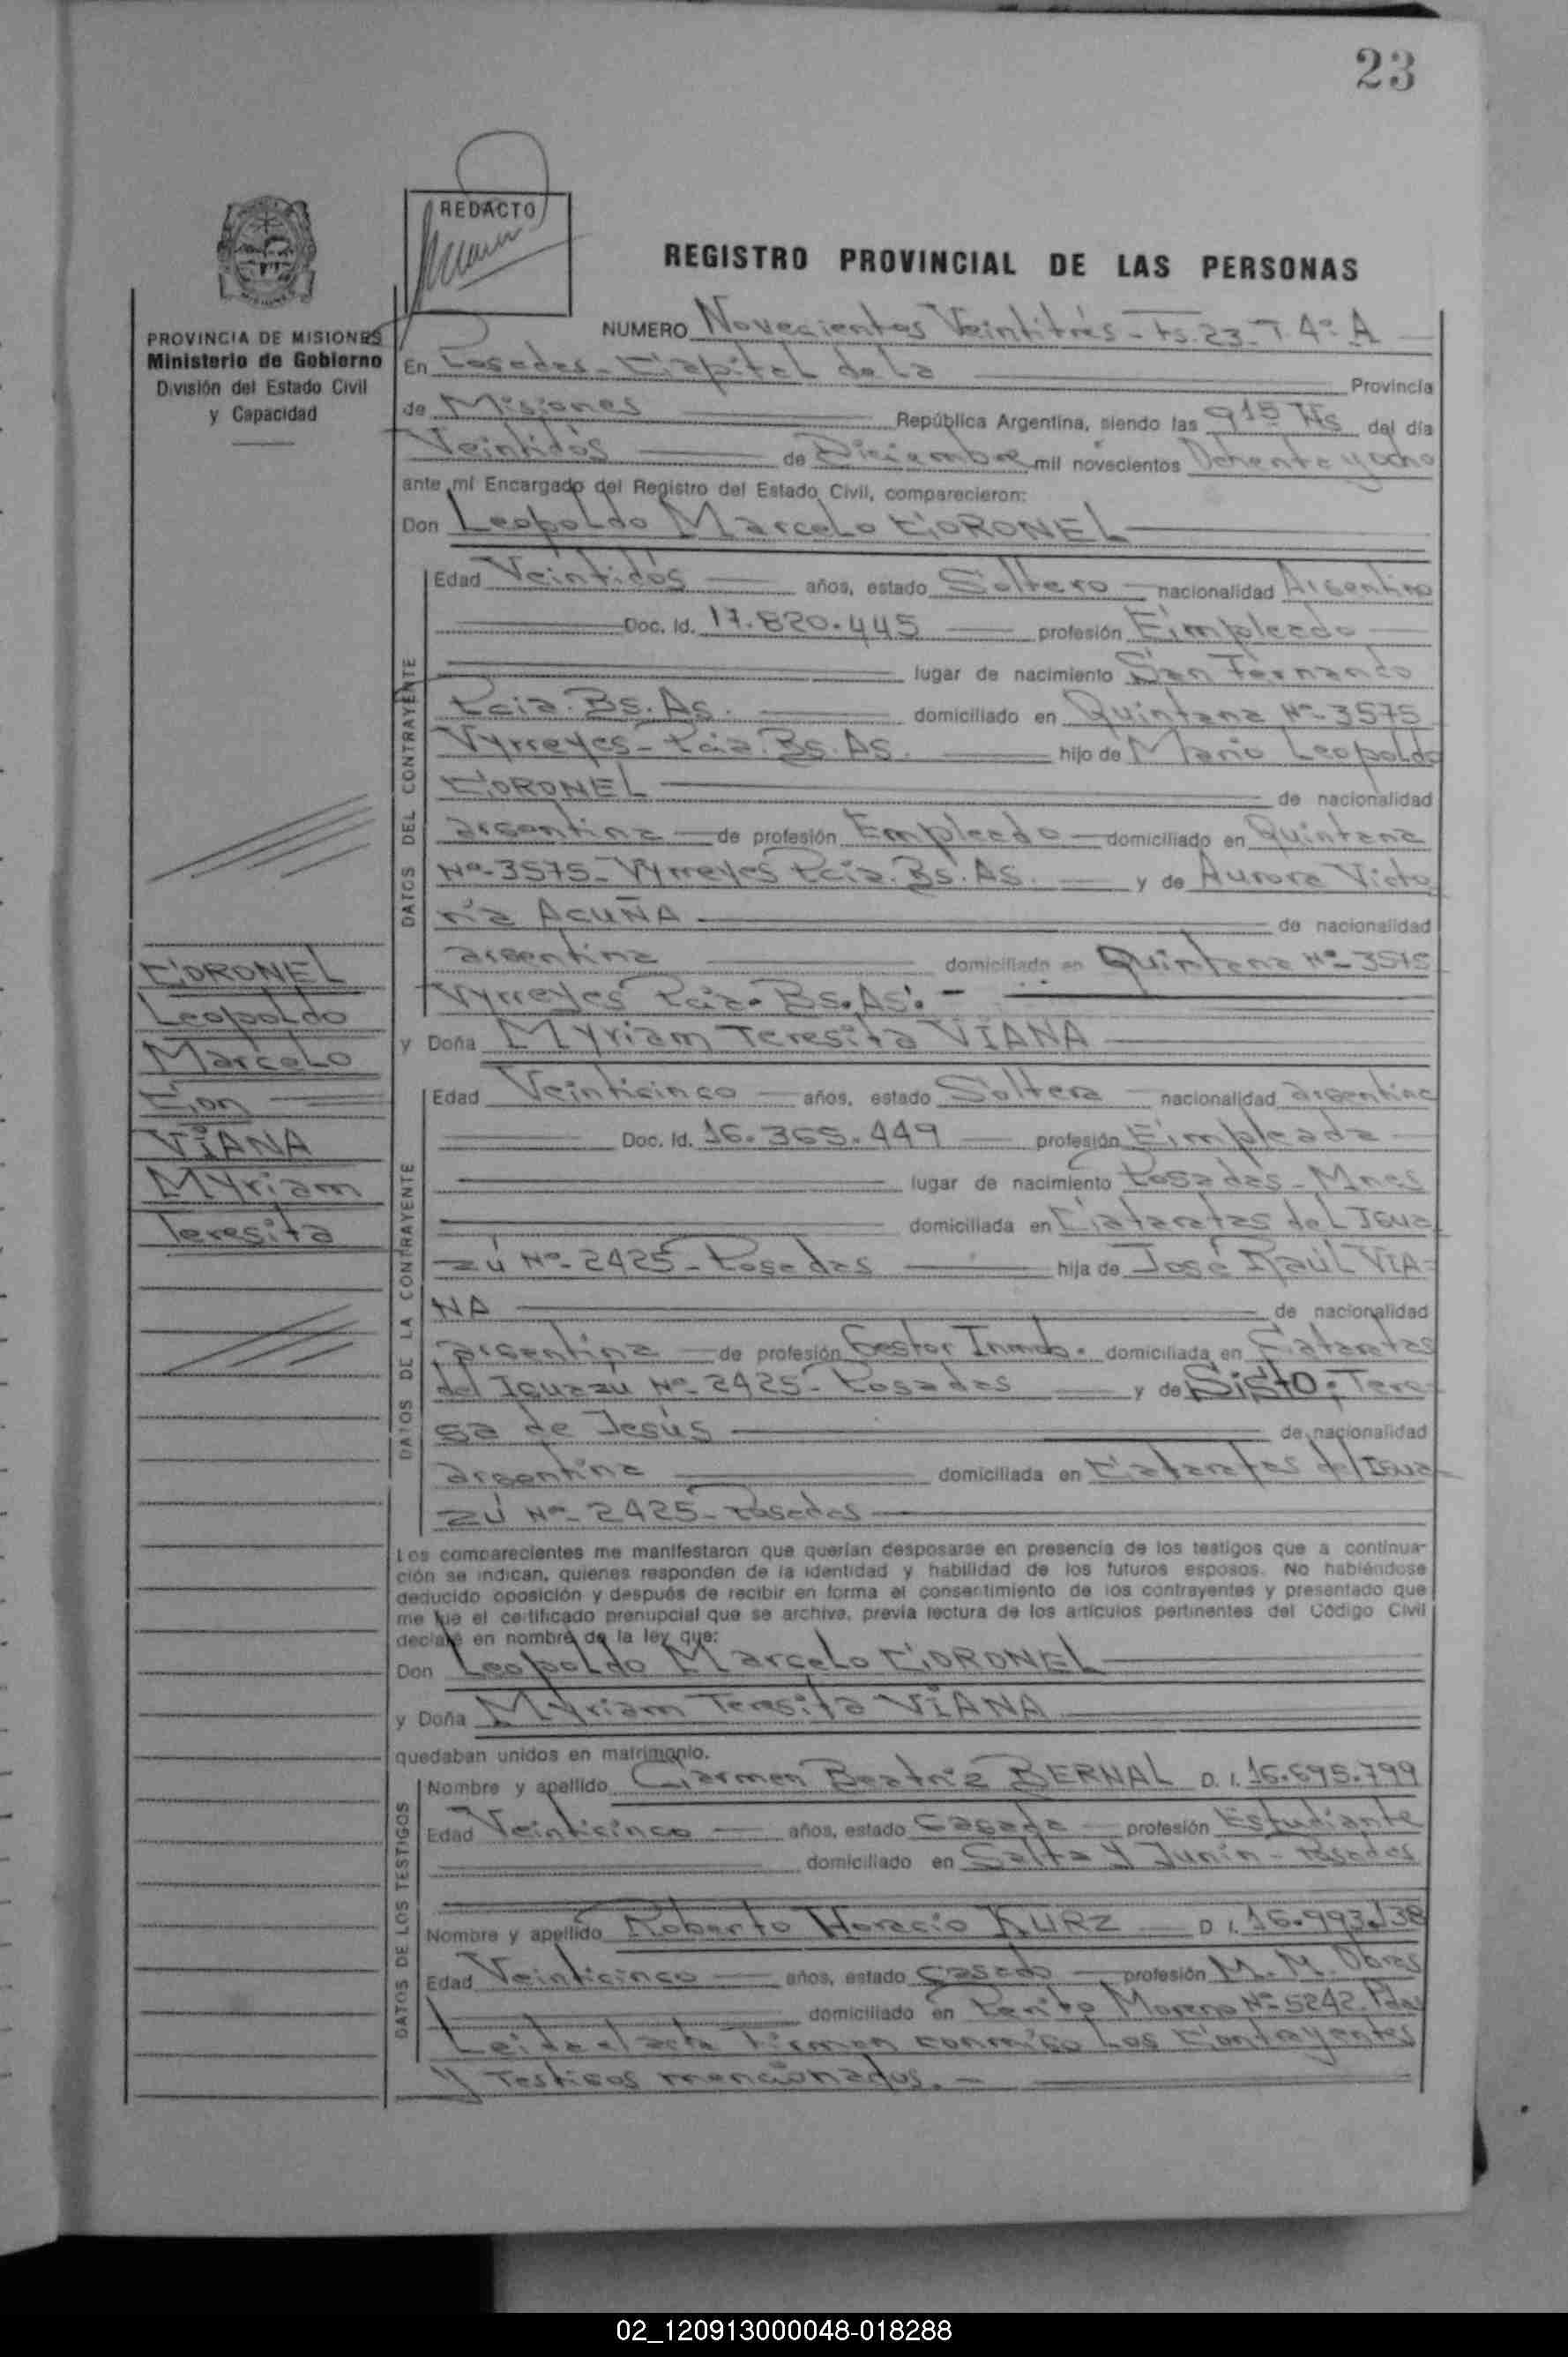 23
REDACTO
REGISTRO PROVINCIAL DE LAS PERSONAS
PROVINCIA DE MISIONES
Ministerio de Gobierno
División del Estado Civil
y Capacidad
NUMERO Novecientos Veintitrés - Fs. 23 - T. 4º A
En Posadas - Capital de la Provincia
de Misiones República Argentina, siendo las 9 15 Hs del día
Veintidós de Diciembre mil novecientos Ochenta y ocho
ante mí Encargado del Registro del Estado Civil, comparecieron:
Don Leopoldo Marcelo CORONEL
DATOS DEL CONTRAYENTE
Edad Veintidós años, estado Soltero nacionalidad Argentino
Doc. Id. 17.820.445 profesión Empleado
lugar de nacimiento San Fernando
Pcia. Bs. As. domiciliado en Quintana Nº 3575
Vyrreyes - Pcia. Bs. As. hijo de Mario Leopoldo
CORONEL de nacionalidad
argentina de profesión Empleado domiciliado en Quintana
Nº 3575 - Vyrreyes Pcia. Bs. As. y de Aurora Victo
ria ACUÑA de nacionalidad
argentina domiciliada en Quintana Nº 3575
Vyrreyes Pcia. Bs. As. -
y Doña Myriam Teresita VIANA
CORONEL
Leopoldo
Marcelo
Con
VIANA
Myriam
Teresita
DATOS DE LA CONTRAYENTE
Edad Veinticinco años, estado Soltera nacionalidad argentina
Doc. Id. 16.365.449 profesión Empleada
lugar de nacimiento Posadas - Mnes
domiciliada en Cataratas del Igua
zú Nº 2425 - Posadas hija de José Raúl VIA-
NA de nacionalidad
argentina de profesión Gestor Inmob. domiciliada en Cataratas
del Iguazú Nº 2425 - Posadas y de SISTO, Tere-
sa de Jesús de nacionalidad
argentina domiciliada en Cataratas del Igua-
zú Nº 2425 - Posadas
Los comparecientes me manifestaron que querían desposarse en presencia de los testigos que a continua-
ción se indican, quienes responden de la identidad y habilidad de los futuros esposos. No habiéndose
deducido oposición y después de recibir en forma el consentimiento de los contrayentes y presentado que
me fue el certificado prenupcial que se archiva, previa lectura de los artículos pertinentes del Código Civil
declaré en nombre de la ley que:
Don Leopoldo Marcelo CORONEL
y Doña Myriam Teresita VIANA
quedaban unidos en matrimonio.
DATOS DE LOS TESTIGOS
Nombre y apellido Carmen Beatriz BERNAL D. I. 16.695.799
Edad Veinticinco años, estado Casada profesión Estudiante
domiciliado en Salta y Junín - Posadas
Nombre y apellido Roberto Horacio KURZ D I. 16.993.138
Edad Veinticinco años, estado Casado profesión M. M. Obras
domiciliado en Perito Moreno Nº 5242. Pdas
Leida el acta Firman conmigo los Contrayentes
y Testigos mencionados. -
02_120913000048-018288